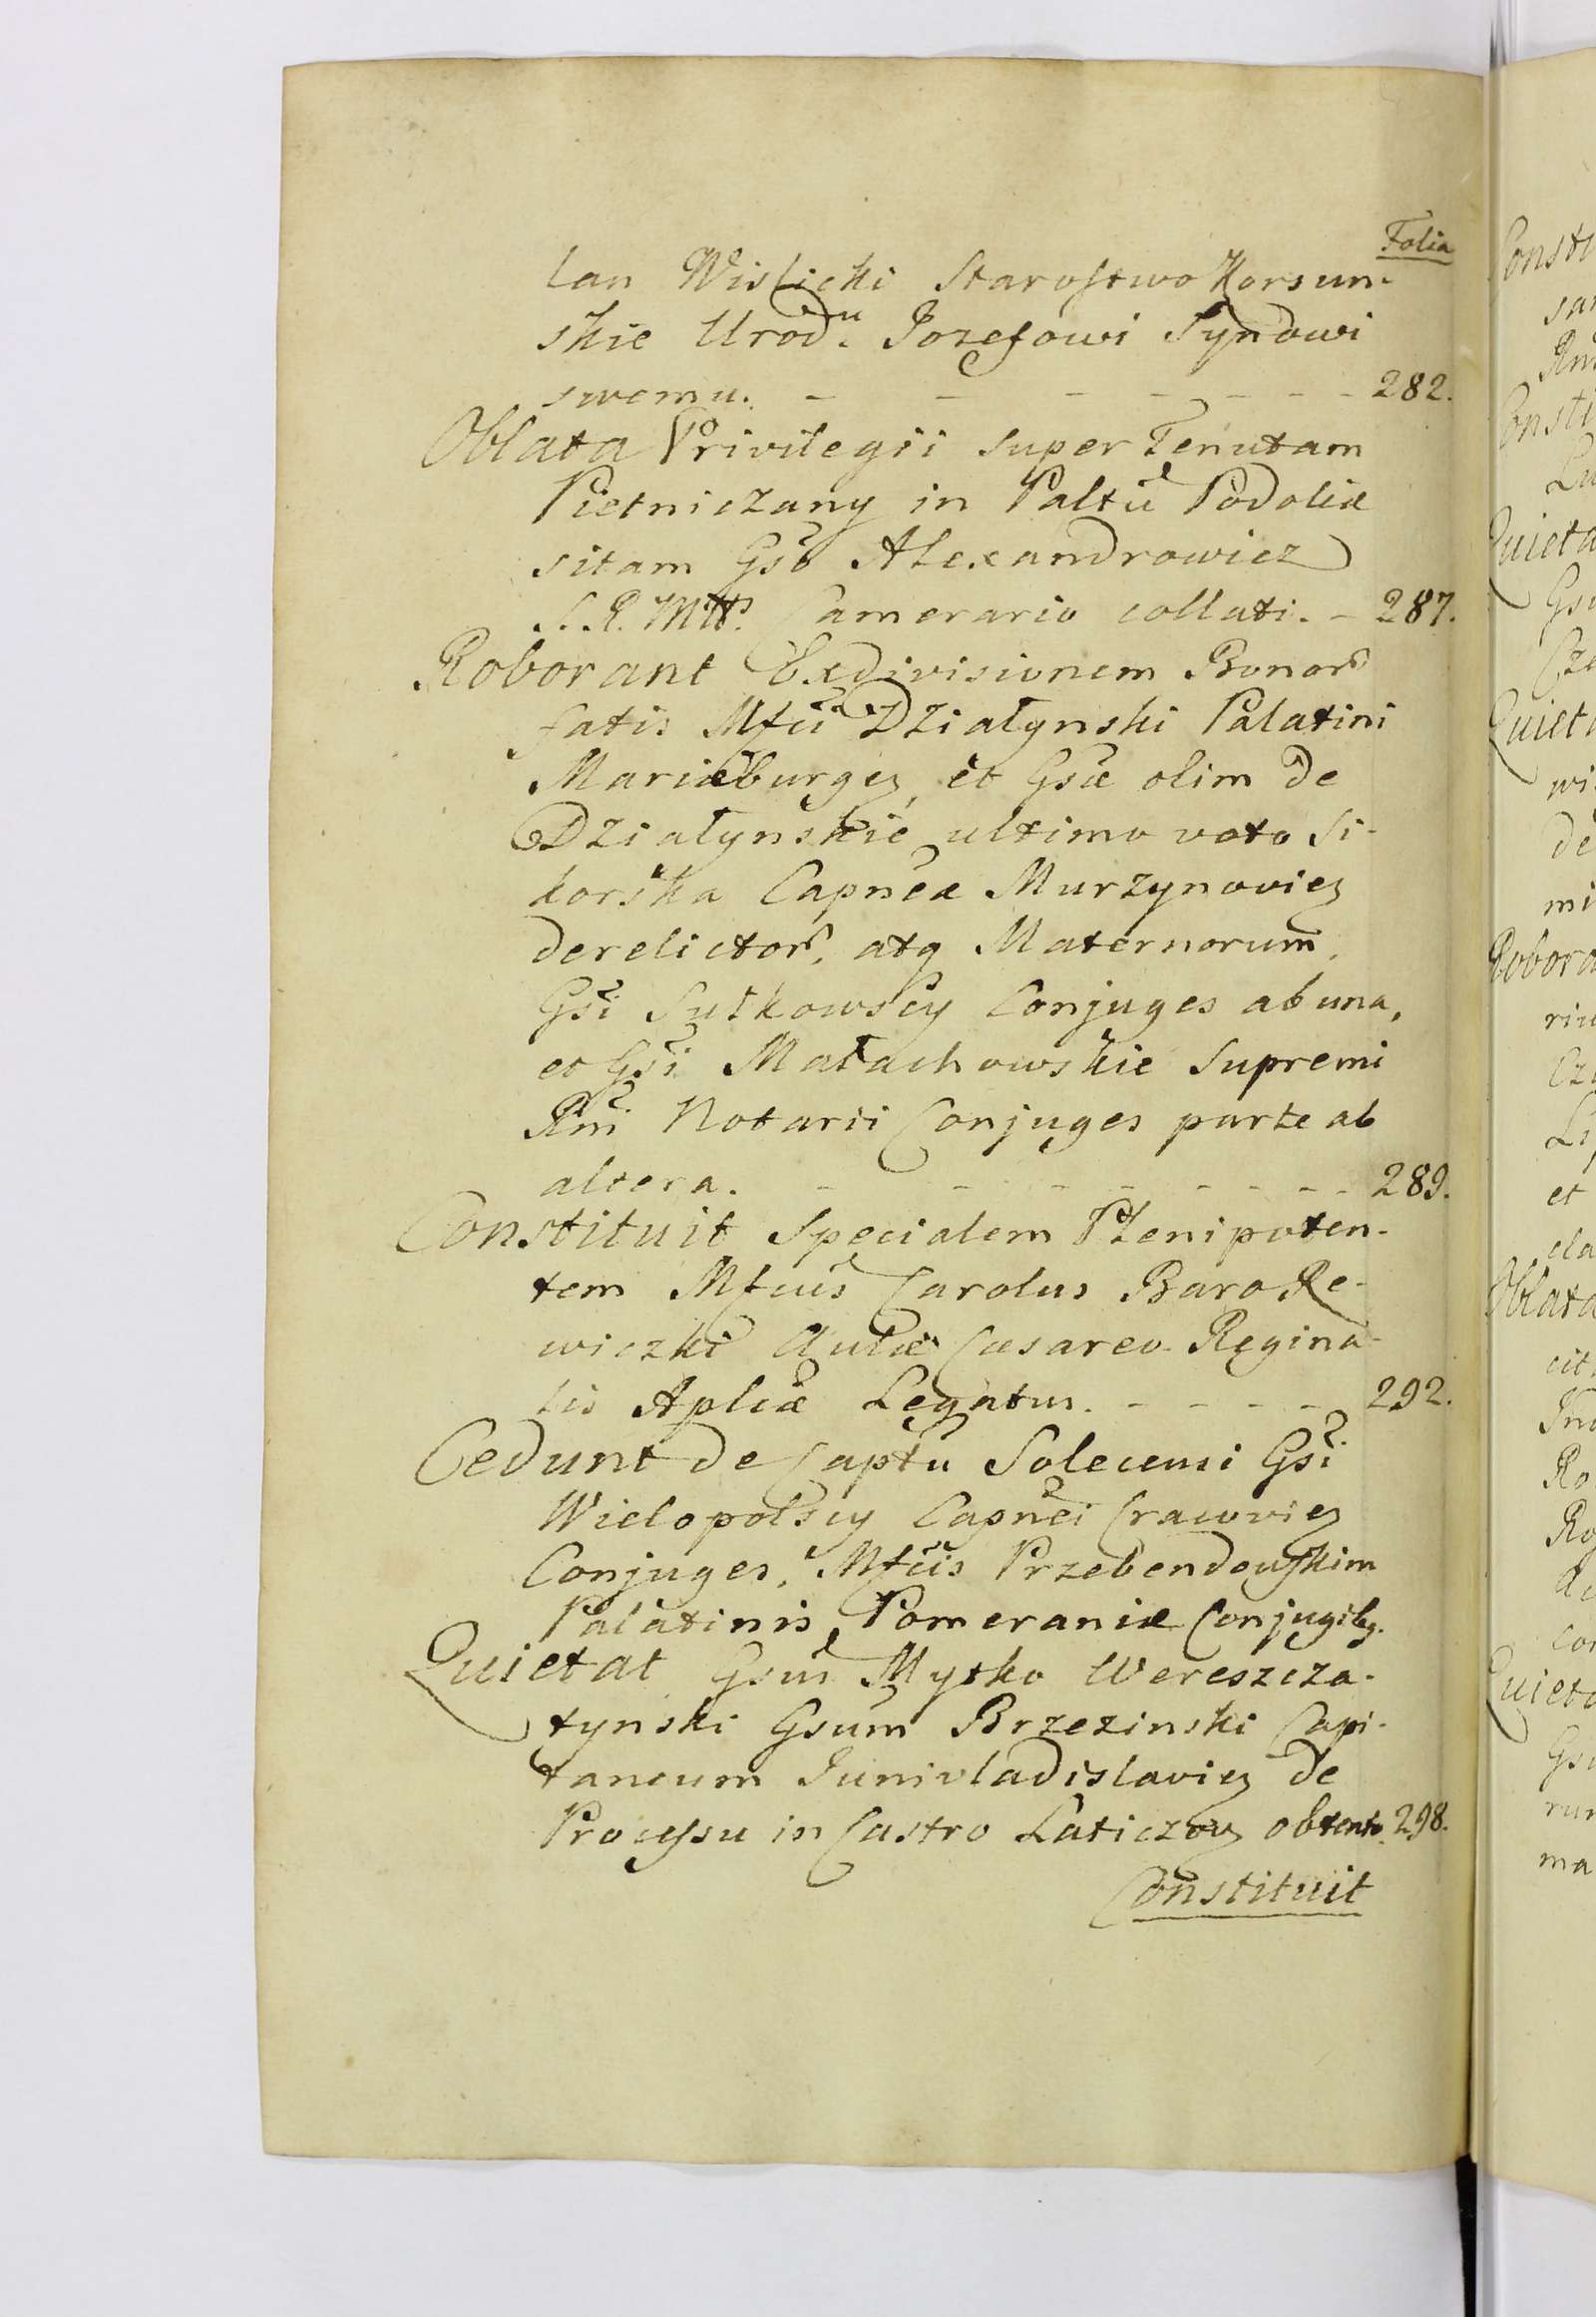 Folia
lan Wislicki Starostwo Korsun-
skie Urod.u Jozefowi Synowi
swemu. - - - - - - - 282.
Oblata Privilegii super Tenutam
Pietniczany in Paltu Podoliæ
sitam Gso Alexandrowicz
S. R. Mttis Camerario collati. - 287.
Roborant Exdivisionem Bonor
fatis Mfci Działynski Palatini
Mariæburgen, et Gsæ olim de
Działynskie ultimo voto Si-
korska Capneæ Murzynovien
derelictor, atq Maternorum,
Gsi Sułkowscy Conjuges ab una,
et Gsi Małachowskie Supremi
Rni Notarii Conjuges parte ab
altera. - - - - - - - 289.
Constituit Specialem Plenipoten-
tem Mfcus Carolus Baro Re-
wiczki Aulæ Cæsareo-Regina-
lis Apliæ Legatus. - - - - 292.
Cedunt de Captu Solecensi Gsi
Wielopolscy Capnei Cracovien
Conjuges, Mfcis Przebendowskim
Palatinis Pomeraniæ Conjugibq.
Quietat Gsus Mytko Wereszcza-
tynski Gsum Brzezinski Capi-
taneum Junivladislavien de
Processu in Castro Laticzov obtento. 298.
Constituit
Consti
Consti
Quieta
Quieta
wi
de
mi
Robora
et
Oblata
Quieta
ma